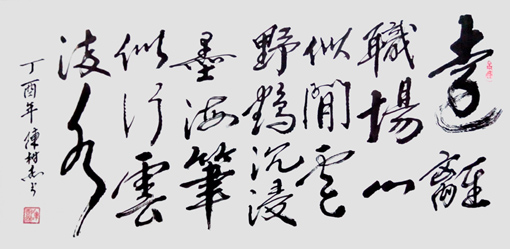 遠離
職場心
似閒雲
野鶴沉浸
墨海筆
似行雲
流水
丁酉年陳樹书